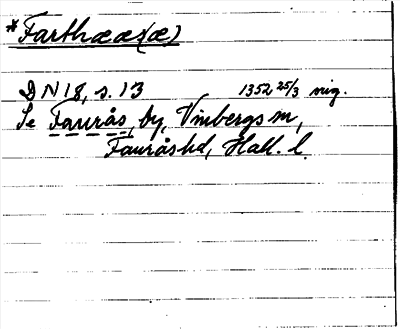 *Farthææs(æ)
DN 18, s. 13 1352 25/3 nig.
Se Faurås, by, Vinbergs sn,
Faurås hd, Hall. l.